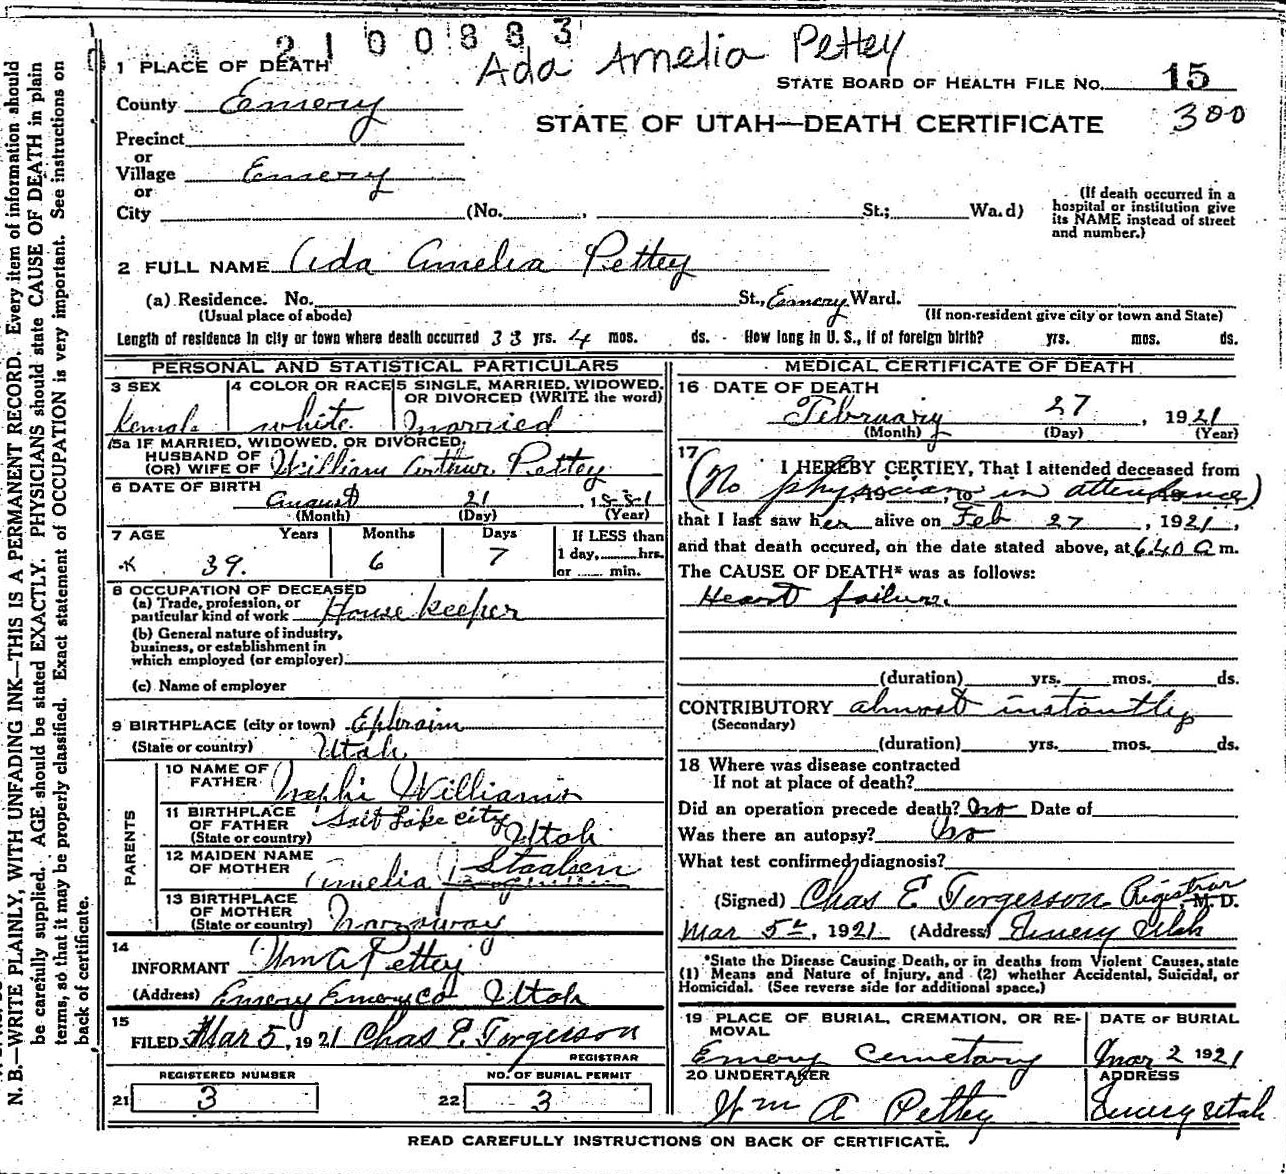 2100883
Ada Amelia Pettey
1 PLACE OF DEATH
STATE BOARD OF HEALTH FILE NO. 15
County Emery
300
STATE OF UTAH—DEATH CERTIFICATE
Precinct
or
Village Emery
or
City (No. , St.; Wa.d)
(If death occurred in a
hospital or institution give
its NAME instead of street
and number.)
2 FULL NAME Ada Amelia Pettey
(a) Residence. No. St., Emery Ward.
(Usual place of abode) (If non-resident give city or town and State)
Length of residence in city or town where death occurred 33 yrs. 4 mos. ds. How long in U. S., if of foreign birth? yrs. mos. ds.
PERSONAL AND STATISTICAL PARTICULARS
3 SEX 4 COLOR OR RACE 5 SINGLE, MARRIED, WIDOWED,
OR DIVORCED (WRITE the word)
Female white married
5a IF MARRIED, WIDOWED, OR DIVORCED,
HUSBAND OF
(OR) WIFE OF William Arthur Pettey
6 DATE OF BIRTH
August 21, 1881
(Month) (Day) (Year)
7 AGE Years Months Days If LESS than
1 day, hrs.
39. 6 7
or min.
8 OCCUPATION OF DECEASED
(a) Trade, profession, or
particular kind of work House keeper
(b) General nature of industry,
business, or establishment in
which employed (or employer)
(c) Name of employer
9 BIRTHPLACE (city or town) Ephraim
(State or country) Utah
PARENTS
10 NAME OF
FATHER Nephi Williams
11 BIRTHPLACE
OF FATHER Salt Lake City
(State or country) Utah
12 MAIDEN NAME
OF MOTHER Amelia Staalsen
13 BIRTHPLACE
OF MOTHER
(State or country) Norway
14
INFORMANT Wm A Pettey
(Address) Emery Emery Co Utah
15
FILED Mar 5, 1921 Chas E. Torgerson
REGISTRAR
REGISTERED NUMBER NO. OF BURIAL PERMIT
21 3 22 3
MEDICAL CERTIFICATE OF DEATH
16 DATE OF DEATH
February 27, 1921
(Month) (Day) (Year)
17
I HEREBY CERTIFY, That I attended deceased from
(No physician in attendance)
, 19 , to , 19
that I last saw her alive on Feb 27, 1921,
and that death occured, on the date stated above, at 6.40 a m.
The CAUSE OF DEATH* was as follows:
Heart failure.
(duration) yrs. mos. ds.
CONTRIBUTORY almost instantly
(Secondary)
(duration) yrs. mos. ds.
18 Where was disease contracted
If not at place of death?
Did an operation precede death? no Date of
Was there an autopsy? no
What test confirmed diagnosis?
(Signed) Chas E Torgerson Registrar M. D.
Mar 5th, 1921 (Address) Emery Utah
*State the Disease Causing Death, or in deaths from Violent Causes, state
(1) Means and Nature of Injury, and (2) whether Accidental, Suicidal, or
Homicidal. (See reverse side for additional space.)
19 PLACE OF BURIAL, CREMATION, OR RE-
MOVAL
DATE OF BURIAL
Emery Cemetary Mar 2 1921
20 UNDERTAKER ADDRESS
Wm A Pettey Emery Utah
READ CAREFULLY INSTRUCTIONS ON BACK OF CERTIFICATE.
N. B.—WRITE PLAINLY, WITH UNFADING INK—THIS IS A PERMANENT RECORD. Every item of information should
be carefully supplied. AGE should be stated EXACTLY. PHYSICIANS should state CAUSE OF DEATH in plain
terms, so that it may be properly classified. Exact statement of OCCUPATION is very important. See instructions on
back of certificate.